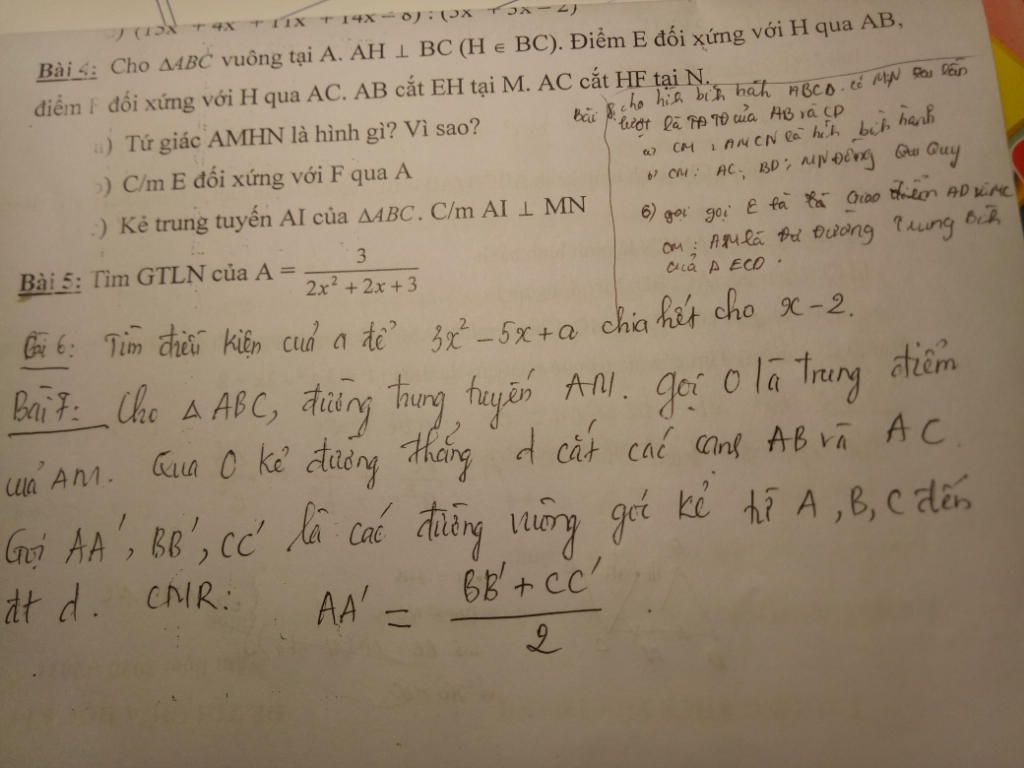 ) (15x + 4x + 11x + 14x - 8) : (5x + 3x - 2)
Bài 4: Cho ΔABC vuông tại A. AH ⊥ BC (H ∈ BC). Điểm E đối xứng với H qua AB,
điểm F đối xứng với H qua AC. AB cắt EH tại M. AC cắt HF tại N.
a) Tứ giác AMHN là hình gì? Vì sao?
b) C/m E đối xứng với F qua A
c) Kẻ trung tuyến AI của ΔABC. C/m AI ⊥ MN
Bài 5: Tìm GTLN của A = 3/(2x² + 2x + 3)
Bài 8 cho hình bình hành ABCD. có M,N
lượt là TĐ của AB và CD
a) CM : AMCN là hình bình hành
b) CM : AC, BD, MN Đồng Quy
gọi E là Giao điểm AD và MC
cm : AM là Đường Trung Bình
của Δ ECD.
Bài 6: Tìm điều kiện cuả a để 3x² - 5x + a chia hết cho x - 2.
Bài 7: Cho Δ ABC, đường trung tuyến AM. gọi O là trung điểm
cuả AM. Qua O kẻ đường thẳng d cắt các cạnh AB và AC.
Gọi AA', BB', CC' là các đường vuông góc kẻ từ A, B, C đến
đt d. CMR: AA' = (BB' + CC')/2.